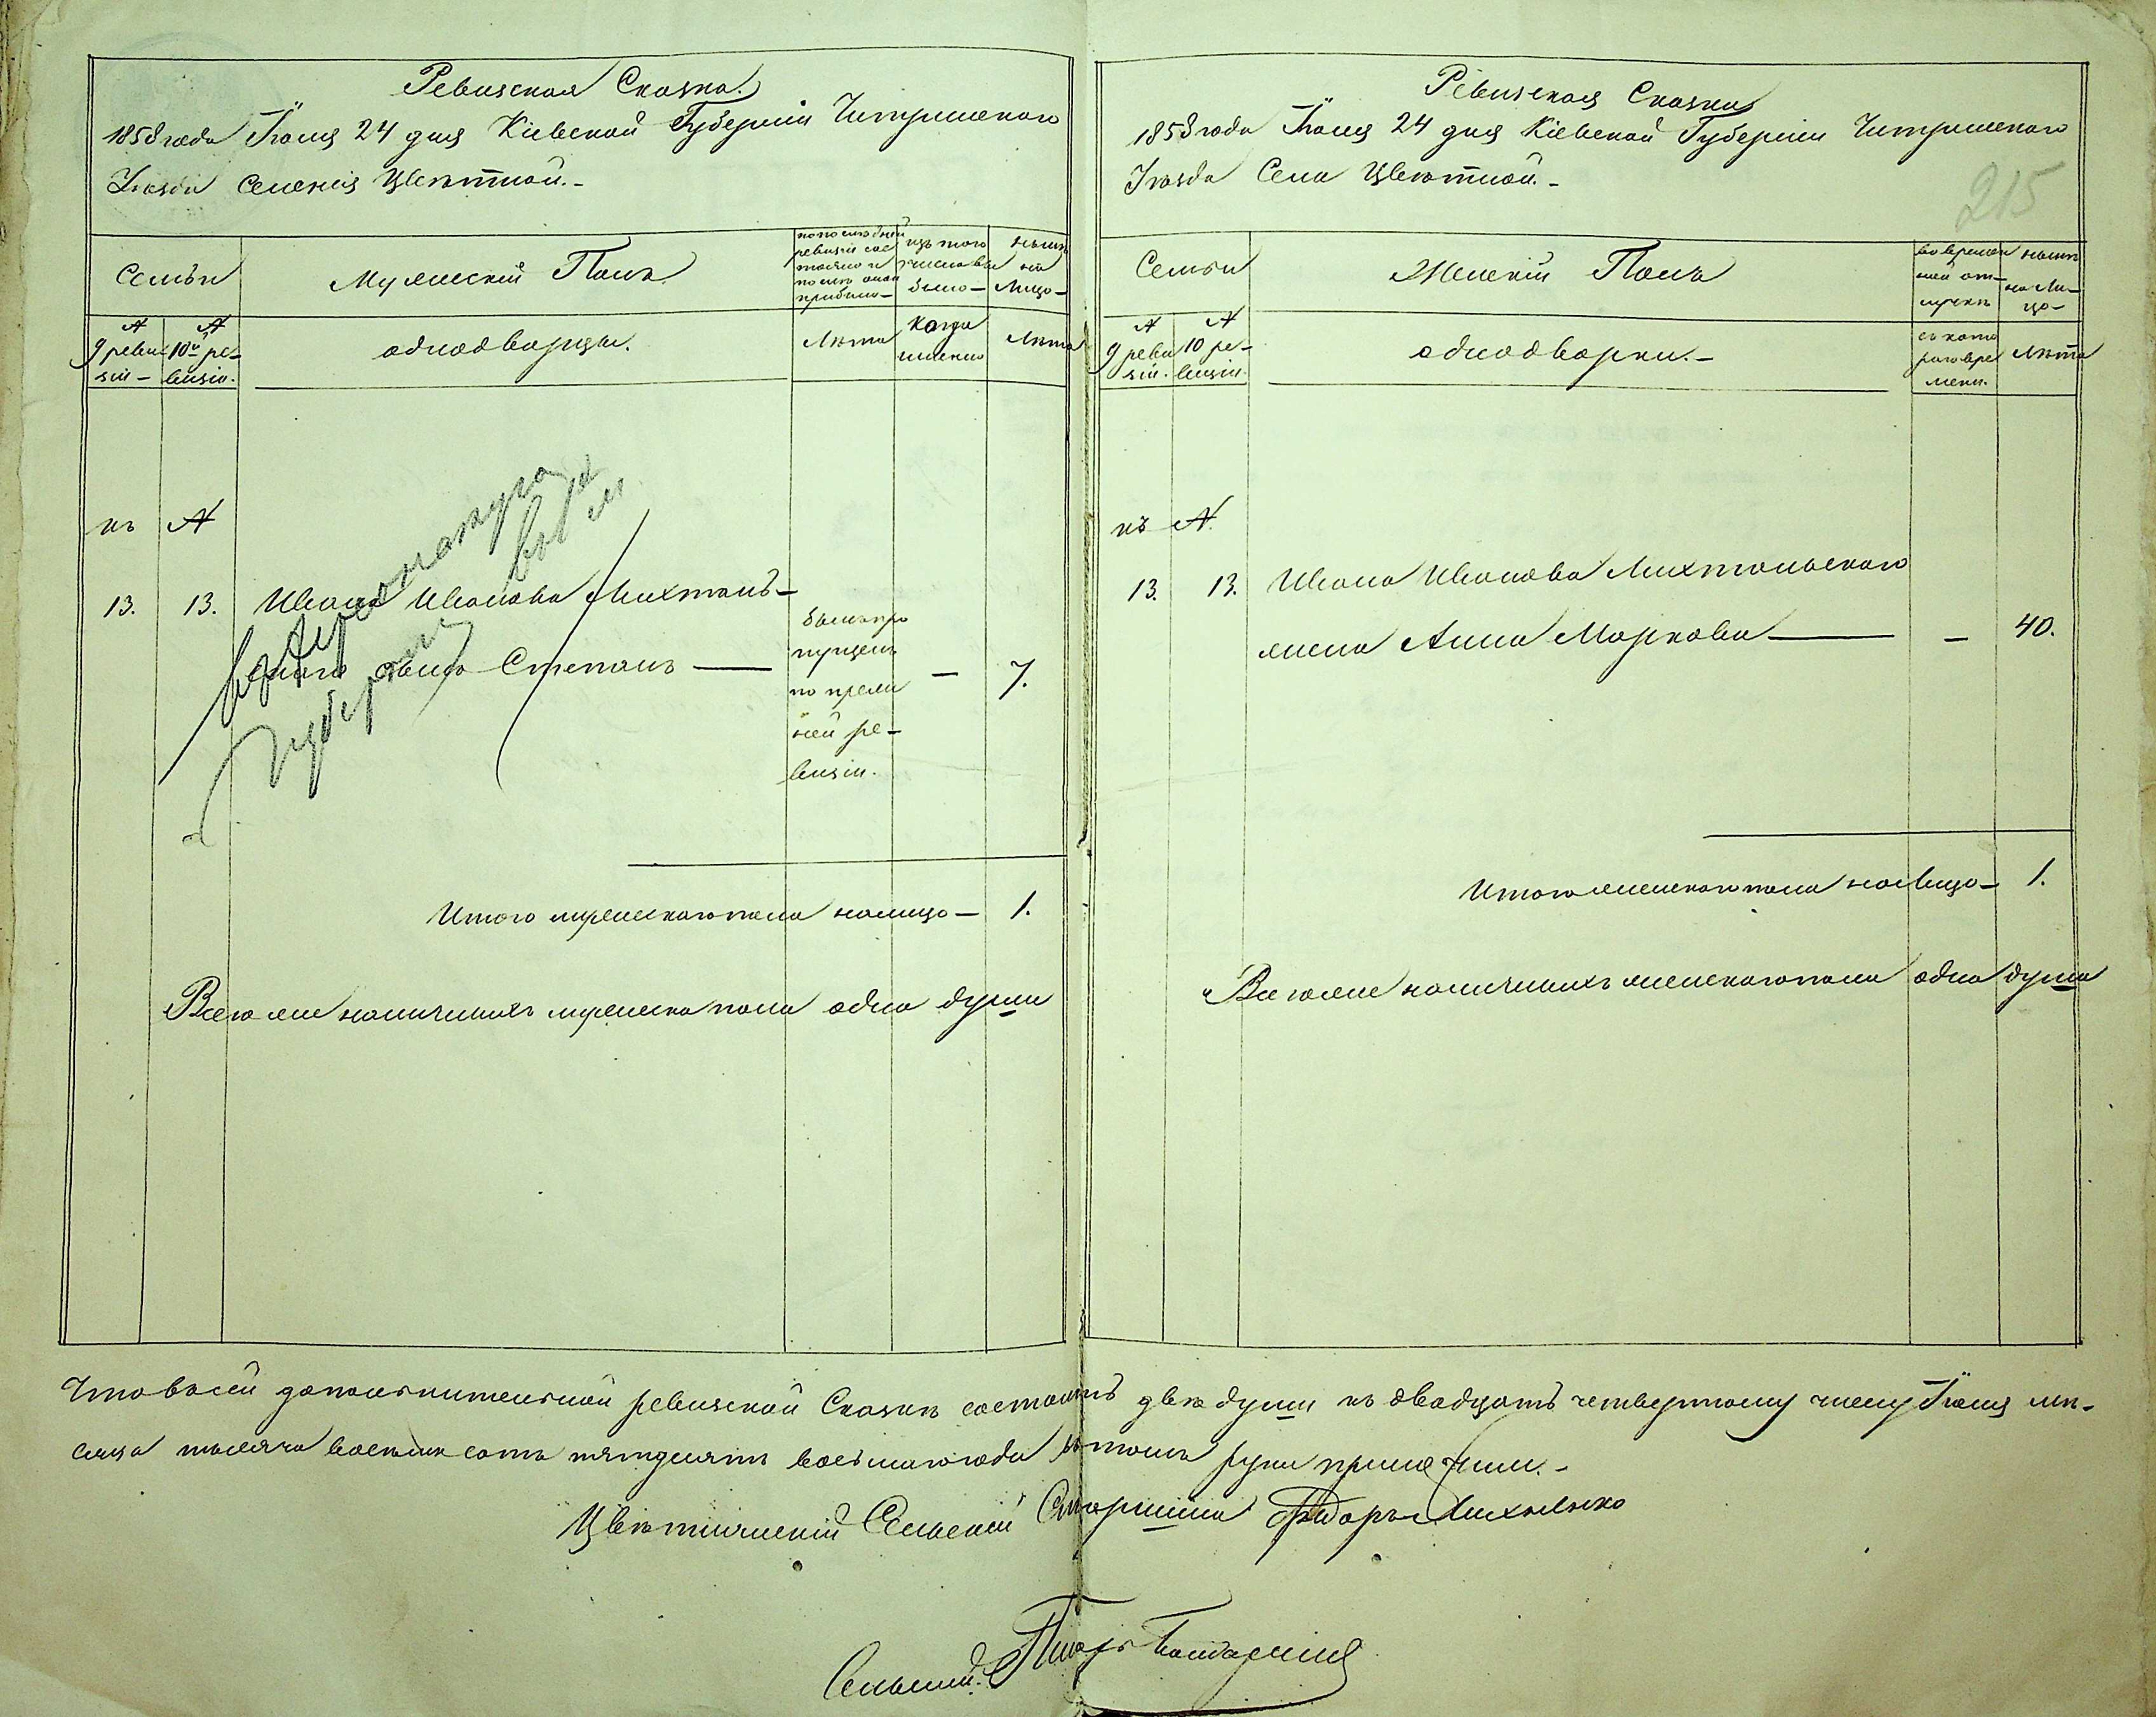 Ревизская Сказка.
1858 года Іюня 24 дня Кіевской Губерніи Чигринскаго
Уезда Селенія Цветной.-
Семьи
Мужескій Полъ
по последней ревизіи состояло и после оной прибыло-
изъ того числа выбыло-
ныне на лицо-
№ 9 ревизіи-
№ 10й ревизіи.
однодворцы.
Лета
когда именно
Лета
къ №
13. 13. Ивана Иванова Лихтанъ-
сынъ Степанъ — былъ пропущенъ по прежней ревизіи. — 7.
въ
губернію
Итого мужескаго пола налицо- 1.
Всего же наличныхъ мужеска пола одна душа
Ревизская Сказка
1858 года Іюня 24 дня Кіевской Губерніи Чигринскаго
Уезда Села Цветной.-
215
Семьи
Женскій Полъ
во временной отлучке
ныне на лицо-
№ 9 ревизіи.
№ 10 ревизіи.
однодворки.-
съ котораго времени.
Лета
къ №.
13. 13. Ивана Иванова Лихтанскаго
жена Анна Маркова — - 40.
Итого женскаго пола налицо- 1.
Всего же наличныхъ женскаго пола одна душа
Что в сей дополнительной ревизской Сказке состоитъ две души къ двадцать четвертому числу Іюня ме-
сяца тысяча восемь сотъ пятдесятъ восьмаго года в томъ руки приложили.-
Цветнянскій Сельскій Старшина Федоръ
Сельскій Писарь